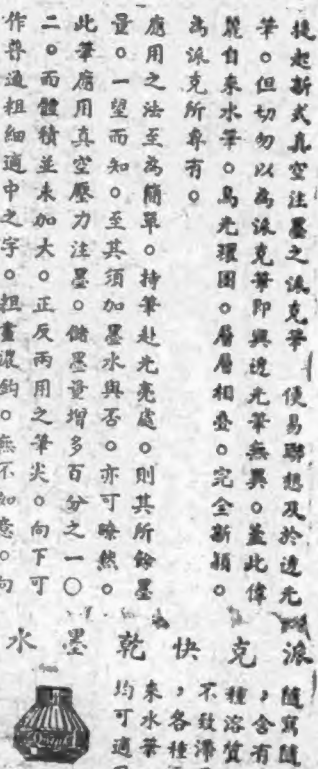 提起新式真空注墨之派克筆　便易聯想及於透光
筆。但切勿以為派克筆即與透光筆無異。蓋此偉
麗自來水筆。烏光環圍。層層相疊。完全新穎。
為派克所專有。
應用之法至為簡單。持筆赴光亮處。則其所餘墨
量。一望而知。至其須加墨水與否。亦可瞭然。
此筆應用真空壓力注墨。儲墨量增多百分之一〇
二。而體積並未加大。正反兩用之筆尖。向下可
作普通粗細適中之字。粗畫濃鈎。無不如意。向
派克快乾墨水
隨寫隨
，含有
種溶質
不致滯
，各種
來水筆
均可適
Quink